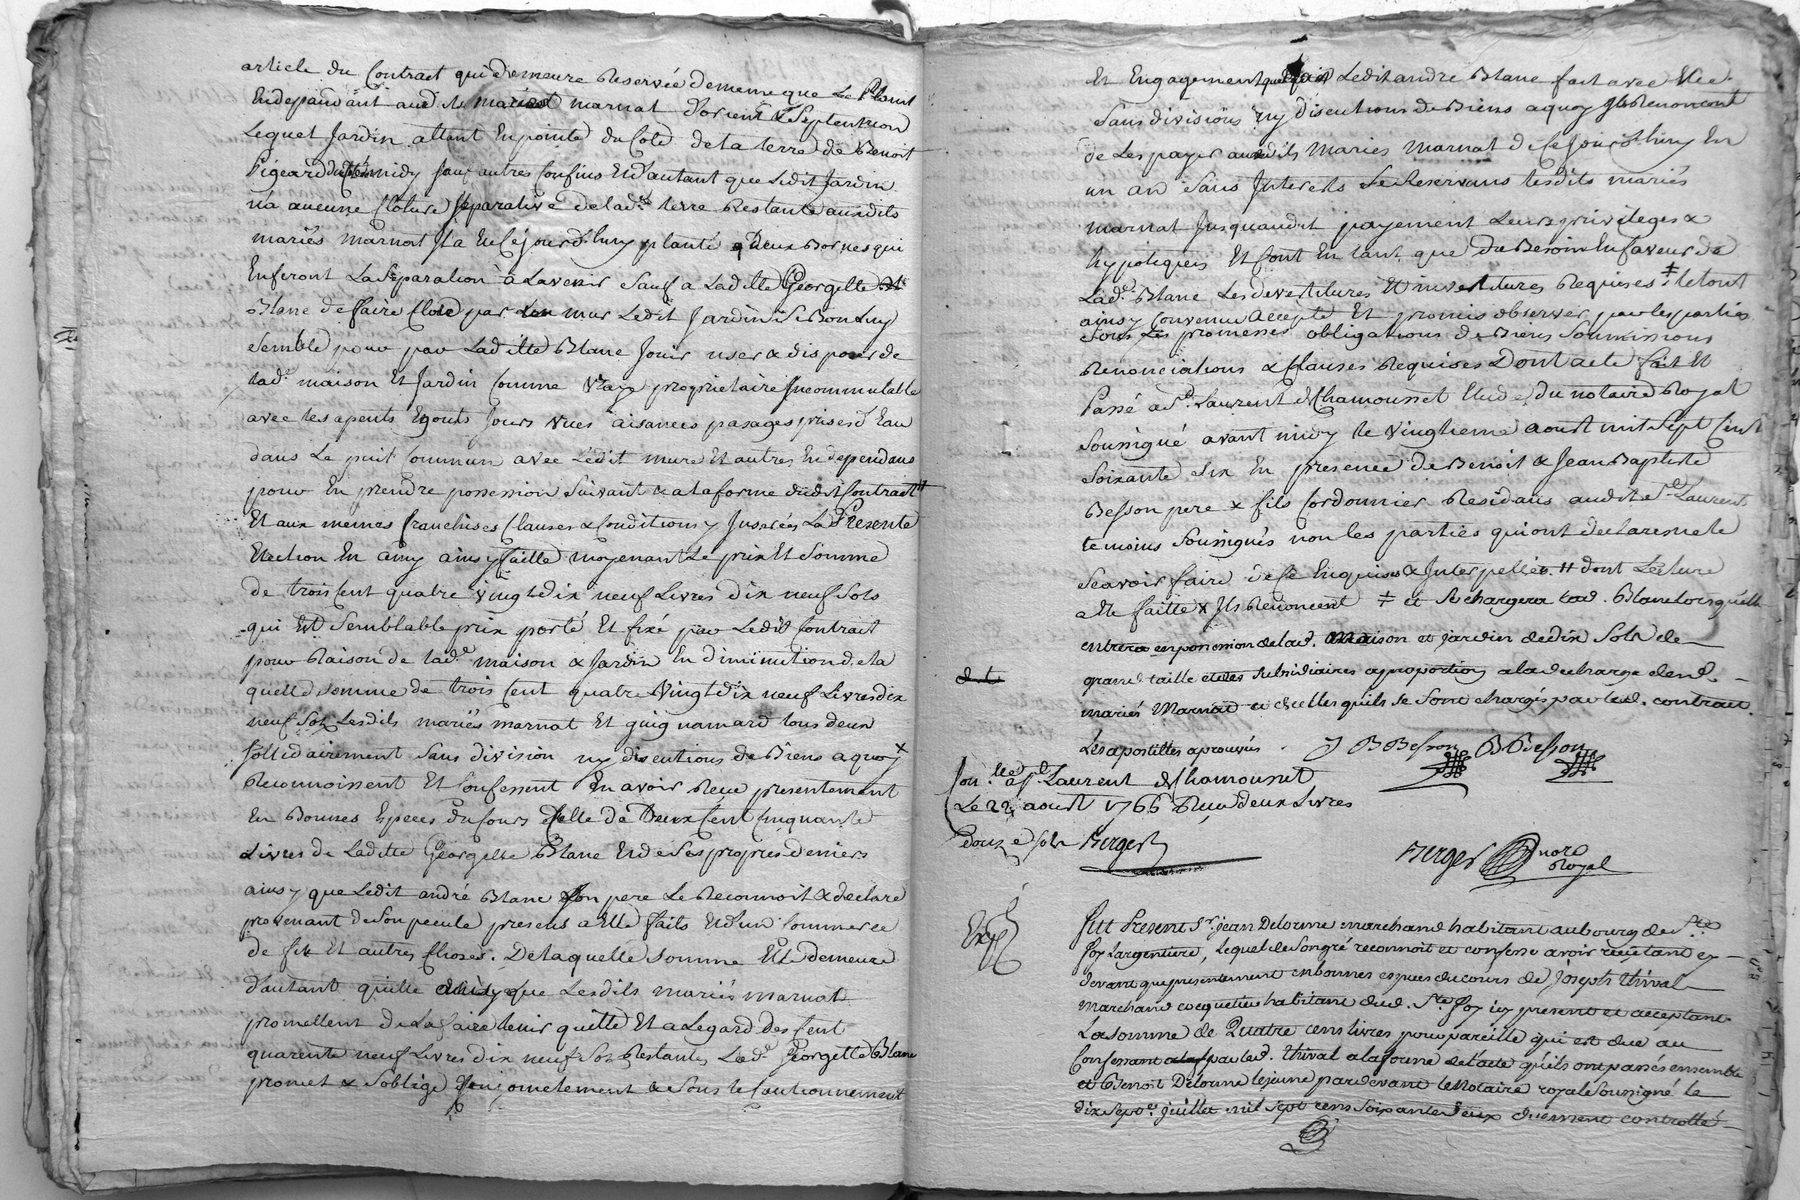 article du Contract qui demeure Reservée de meme que Le
Endependant aud. maries marnat d'orient & Septentrion
Lequel Jardin attant En pointe du Coté de la terre de Benoit
Pigeard midy sauf autres Confins Et d'autant que Ledit Jardin
n'a aucune Cloture Separative de lad.e terre Restante auxdits
mariés marnat Il a Eté cejourd'huy planté Deux Bornes qui
En feront La Separation à L'avenir Sauf a Ladite Georgette
Blanc de faire Clore par un mur Ledit Jardin Si Bon Luy
Semble pour par Laditte Blanc Jouir user & disposer de
lad.e maison Et Jardin Comme Vraye propriétaire Incommutable
avec Les apents Egouts Jours vues aisances pasages prises d'Eau
dans Le puit Commun avec Ledit mure Et autres En dependans
pour En prendre possession Suivant & a la forme dudit Contract
Et aux memes franchises Clauses & Conditions y Inserées La Presente
Election En amy ainsy faitte moyenant Le prix Et Somme
de trois Cent quatre vingt dix neuf Livres dix neuf Sols
qui Est Semblable prix porté Et fixé par Ledit Contract
pour Raison de lad.e maison & Jardin En diminution de la
quelle somme de trois Cent quatre Vingt dix neuf Livres dix
neuf Sols Lesdits mariés marnat Et guignamard tous deux
Sollidairement Sans division ny discutions de Biens a quoy
Reconnoissent Et Confessent En avoir Reçu presentement
En Bonnes Especes du Cours Celle de Deux Cent Cinquante
Livres de Laditte Georgette Blanc Et de Ses propres deniers
ainsy que Ledit andré Blanc Son pere Le Reconnoit & declare
provenant de Son pecule presens a Elle faits Et d'un Commerce
de fil Et autres Choses. De laquelle Somme Elle demeure
d'autant quitte que Lesdits mariés marnat
promettent de La faire tenir quitte Et a L'egard des Cent
quarente neuf Livres dix neuf Sols Restantes Lad.e Georgette Blanc
promet & S'oblige Conjointement & Sous le Cautionnement
Et Engagement que fait Ledit andre Blanc fait avec Elle
Sans divisions ny discutions de Biens a quoy Ils Renoncent
de Les payer auxdits Mariés Marnat de Cejourd'huy En
un an Sans Interets Se Reservans Lesdits mariés
marnat Jusqu'audit payement Leurs privileges &
hypoteques Et font En tant que de Besoin En faveur de
Lad.e Blanc Les devetitures Et invetitures Requises ‡ le tout
ainsy Convenu accepté Et promis observer par les parties
Sous Les promesses obligations de Biens Soumissions
Renonciations & Clauses Requises Dont acte fait Et
Passé a St. Laurent de Chamousset Etude du notaire Royal
Soussigné avant midy le vingtieme aoust mil Sept Cent
Soixante Six En presence de Benoit & Jean Baptiste
Besson pere & fils Cordonnier Residans audit St. Laurent
temoins Soussignés non les parties qui ont declaré ne le
Scavoir faire de Ce Enquises & Interpellées. # dont Lecture
a Eté faitte x Ils Renoncent ‡ et se chargera lad. Blanc lorsqu'elle
entrera en possession de lad. Maison et jardin de dix Sols de
grand taille et des subsidiaires a proportion a la decharge desd.
mariés Marnat et de celles qu'ils se sont chargés par led. contract.
Les apostilles aprouvées. J B Besson B Besson
Con.llé a St. Laurent de Chamousset
Le 22 aoust 1766 Reçu deux Livres
douze sols Berger
Berger nore
Royal
Exp.é
Fut Present Sr. jean Delorme marchand habitant au bourg de Ste.
foy L'argentiere, Lequel de Son gré reconnoit et confesse avoir reçu tant cy
devant que presentement en bonnes especes du cours de Joseph thival
marchand coquetier habitant aud. Ste. foy icy present et acceptant
La somme de Quatre cens livres pour pareille qui est due au
Confessant par led. thival a la forme de l'acte qu'ils ont passés ensemble
et Benoit Delorme le jeune pardevant le Notaire royal Soussigné le
dix Sept.e juillet mil Sept cens Soixante deux duement controllé